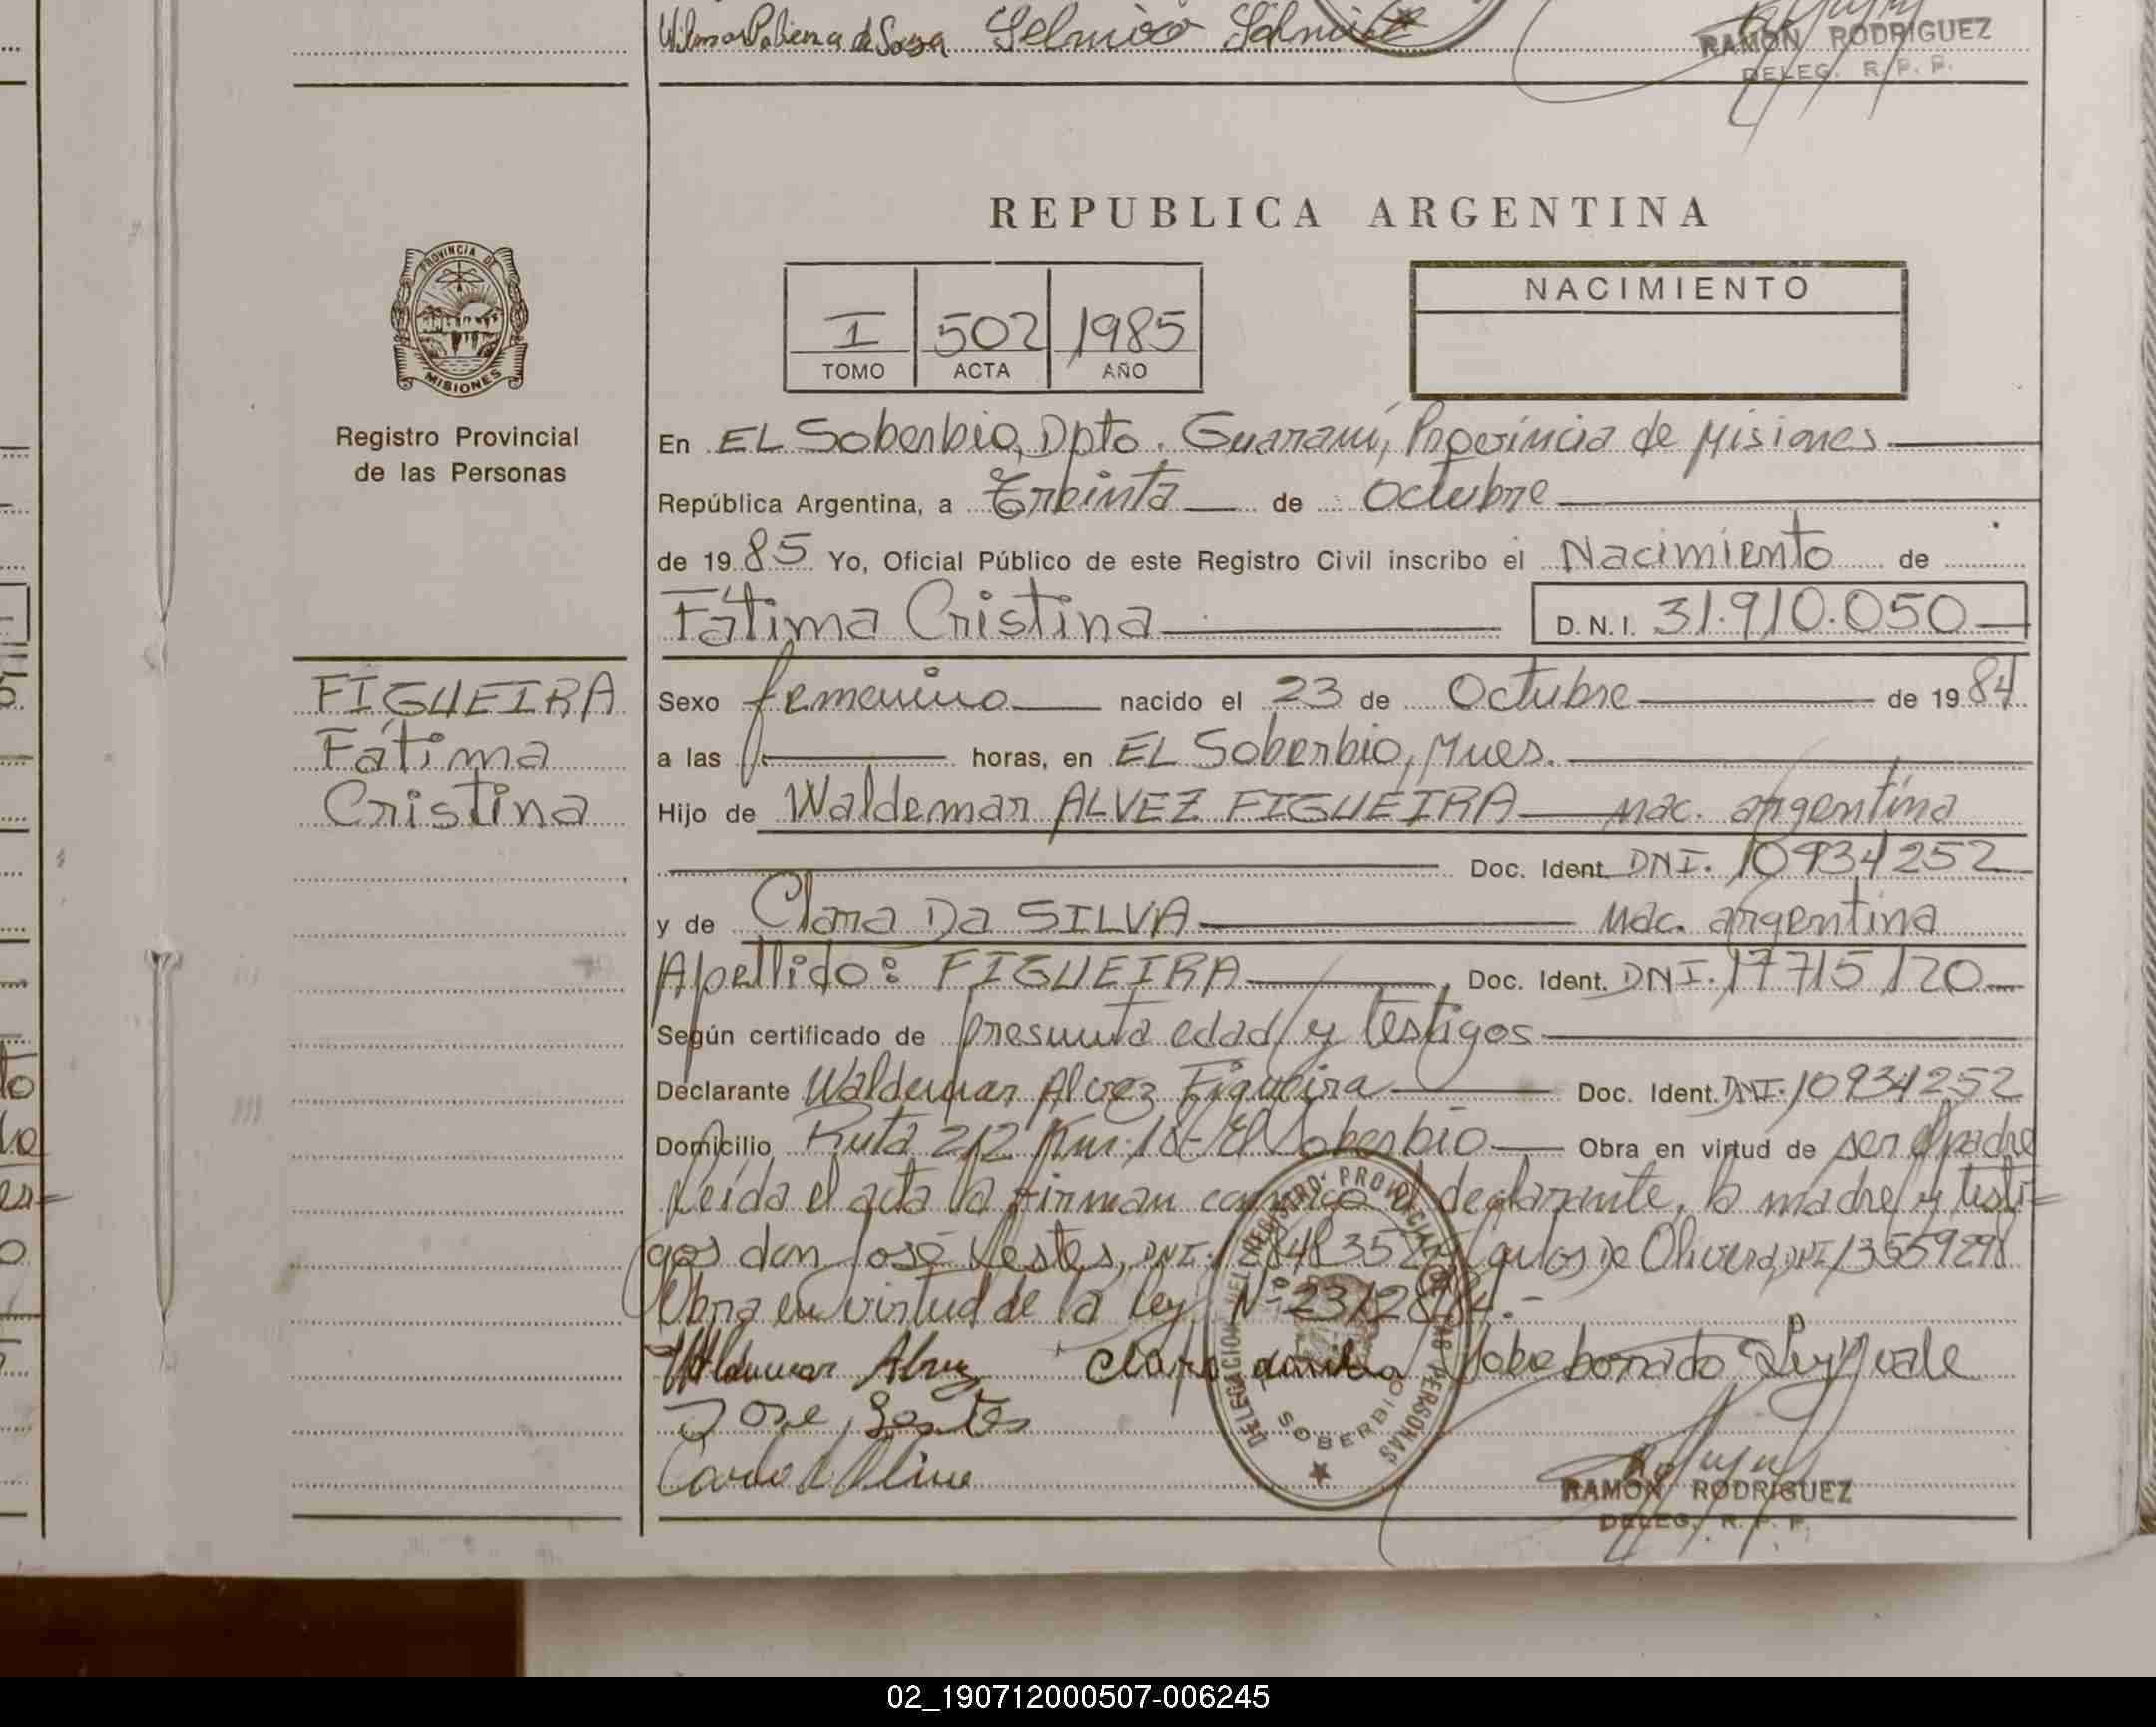 Selmiro Schmidt
RAMON RODRIGUEZ
DELEG. R. P. P.
REPUBLICA ARGENTINA
PROVINCIA DE
MISIONES
Registro Provincial
de las Personas
I 502 1985
TOMO ACTA AÑO
NACIMIENTO
En EL Soberbio, Dpto. Guaraní, Provincia de Misiones
República Argentina, a Treinta de Octubre
de 1985 Yo, Oficial Público de este Registro Civil inscribo el Nacimiento de
Fátima Cristina D.N.I. 31.910.050
FIGUEIRA
Fátima
Cristina
Sexo femenino nacido el 23 de Octubre de 1984
a las horas, en EL Soberbio, Mnes.
Hijo de Waldemar ALVEZ FIGUEIRA nac. argentina
Doc. Ident. DNI. 10934252
y de Clara Da SILVA nac. argentina
Apellido: FIGUEIRA Doc. Ident. DNI. 17715120
Según certificado de presunta edad y testigos
Declarante Waldemar Alvez Figueira Doc. Ident. DNI. 10934252
Domicilio Ruta 212 Km. 18 - El Soberbio Obra en virtud de ser el padre
Leída el acta la firman conmigo el declarante, la madre y testi=
gos don José Testes, DNI. y Carlos De Olivera, DNI 13559298
Obra en virtud de la ley Nº 23128/84.-
Waldemar Alvez Clara da silva Sobre borrado Ley vale
Jose
Carlo d Olive
DELEGACION DEL REGISTRO PROVINCIAL DE LAS PERSONAS
SOBERBIO
RAMON RODRIGUEZ
DELEG. R. P. P.
02_190712000507-006245